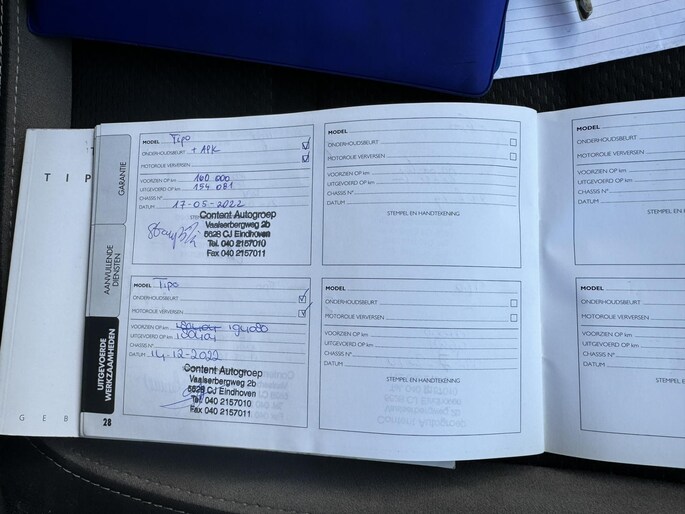 TIP
GARANTIE
AANVULLENDE
DIENSTEN
UITGEVOERDE
WERKZAAMHEDEN
GEB
28
MODEL Tipo
ONDERHOUDSBEURT + APK
MOTOROLIE VERVERSEN
VOORZIEN OP km 160 000
UITGEVOERD OP km 154.081
CHASSIS N°
DATUM 17-05-2022
Content Autogroep
Vaalserbergweg 2b
5628 CJ Eindhoven
Tel. 040 2157010
Fax 040 2157011
MODEL Tipo
ONDERHOUDSBEURT
MOTOROLIE VERVERSEN
VOORZIEN OP km
UITGEVOERD OP km
CHASSIS N°
DATUM 14-12-2022
Content Autogroep
Vaalserbergweg 2b
5628 CJ Eindhoven
Tel. 040 2157010
Fax 040 2157011
MODEL
ONDERHOUDSBEURT
MOTOROLIE VERVERSEN
VOORZIEN OP km
UITGEVOERD OP km
CHASSIS N°
DATUM
STEMPEL EN HANDTEKENING
MODEL
ONDERHOUDSBEURT
MOTOROLIE VERVERSEN
VOORZIEN OP km
UITGEVOERD OP km
CHASSIS N°
DATUM
STEMPEL EN HANDTEKENING
MODEL
ONDERHOUDSBEURT
MOTOROLIE VERVERSEN
VOORZIEN OP km
UITGEVOERD OP km
CHASSIS N°
DATUM
STEMPEL EN H
MODEL
ONDERHOUDSBEURT
MOTOROLIE VERVERSEN
VOORZIEN OP km
UITGEVOERD OP km
CHASSIS N°
DATUM
STEMPEL EN